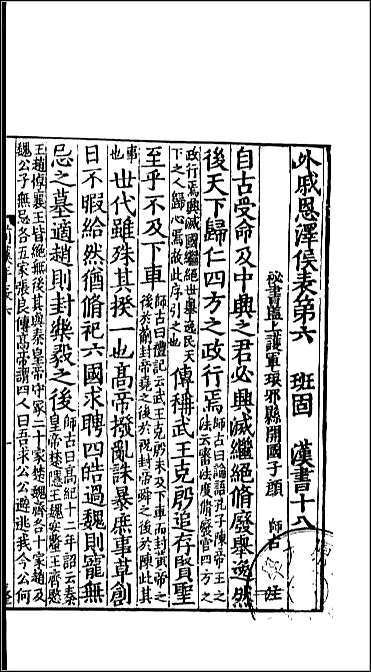 外戚恩澤侯表第六 班固 漢書十八
秘書監上護軍琅邪縣開國子顏 師古 注
自古受命及中興之君必興滅繼絕脩廢舉逸然
後天下歸仁四方之政行焉師古曰論語孔子陳帝王之法云審法度脩廢官四方之
政行焉興滅國繼絕世舉逸民天下之人歸心焉故此序引之也傳稱武王克殷追存賢聖
至乎不及下車師古曰禮記云武王克殷未及下車而封黃帝之後於薊封帝堯之後於祝封帝舜之後於陳此其
事也世代雖殊其揆一也高帝撥亂誅暴庶事草創
日不暇給然猶脩祀六國求聘四皓過魏則寵無
忌之墓適趙則封樂毅之後師古曰高紀十二年詔云秦皇帝楚隱王魏安釐王齊愍
王趙悼襄王皆絕無後其與秦皇帝守冢二十家楚魏齊各十家趙及魏公子無忌各五家張良傳高帝謂四人曰吾求公公避逃我今公何